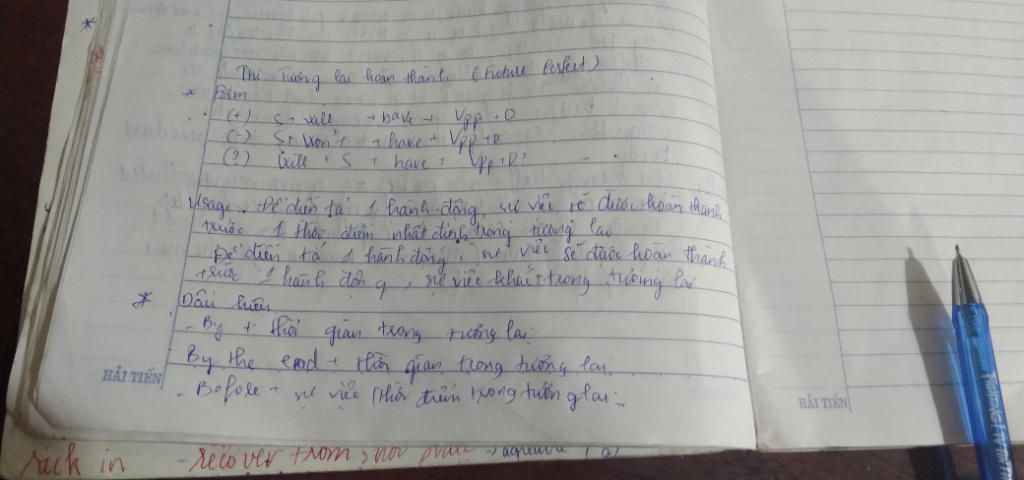 Thì Tương lai hoàn thành (Future Perfect)
* Form
(+) S + will + have + Vpp + O
(-) S + won't + have + Vpp + O
(?) Will + S + have + Vpp + O?
Usage. Để diễn tả 1 hành động, sự việc sẽ được hoàn thành
trước 1 thời điểm nhất định trong tương lai
Để diễn tả 1 hành động, sự việc sẽ được hoàn thành
trước 1 hành động, sự việc khác trong tương lai
* Dấu hiệu
- By + thời gian trong tương lai.
By the end + thời gian trong tương lai.
- Before + sự việc / thời điểm trong tương lai.
HẢI TIẾN
HẢI TIẾN
recover from